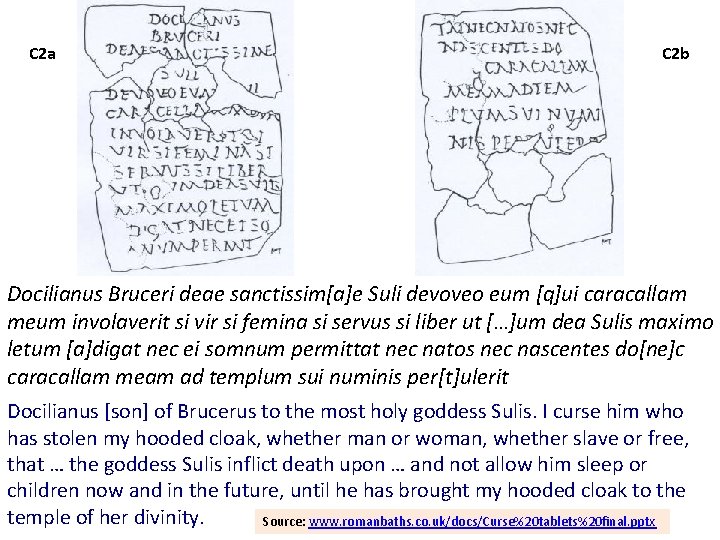 C2a
DOCILIANUS
BRUCERI
DEAE SANCTISSIME
SULI
DEVOVEO EUM
CARACELLA
INVOLAVERIT SI
VIR SI FEMINA SI
SERVUS SI LIBER
UT DEA SULIS
MAXIMO LETUM
DIGAT NEC EI SO
MNUM PERMIT
C2b
TAT NEC NATOS NEC
NASCENTES DO
CARACALLAM
MEAM AD TEM
PLUM SUI NUMI
NIS
Docilianus Bruceri deae sanctissim[a]e Suli devoveo eum [q]ui caracallam
meum involaverit si vir si femina si servus si liber ut […]um dea Sulis maximo
letum [a]digat nec ei somnum permittat nec natos nec nascentes do[ne]c
caracallam meam ad templum sui numinis per[t]ulerit
Docilianus [son] of Brucerus to the most holy goddess Sulis. I curse him who
has stolen my hooded cloak, whether man or woman, whether slave or free,
that … the goddess Sulis inflict death upon … and not allow him sleep or
children now and in the future, until he has brought my hooded cloak to the
temple of her divinity.
Source: www.romanbaths.co.uk/docs/Curse%20tablets%20final.pptx